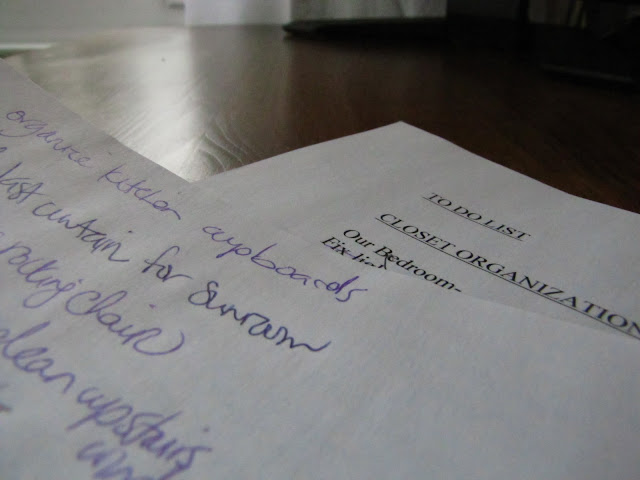 organize kitchen cupboards
last curtain for sunroom
rocking chair
clean upstairs
TO DO LIST
CLOSET ORGANIZATION
Our Bedroom-
Fix